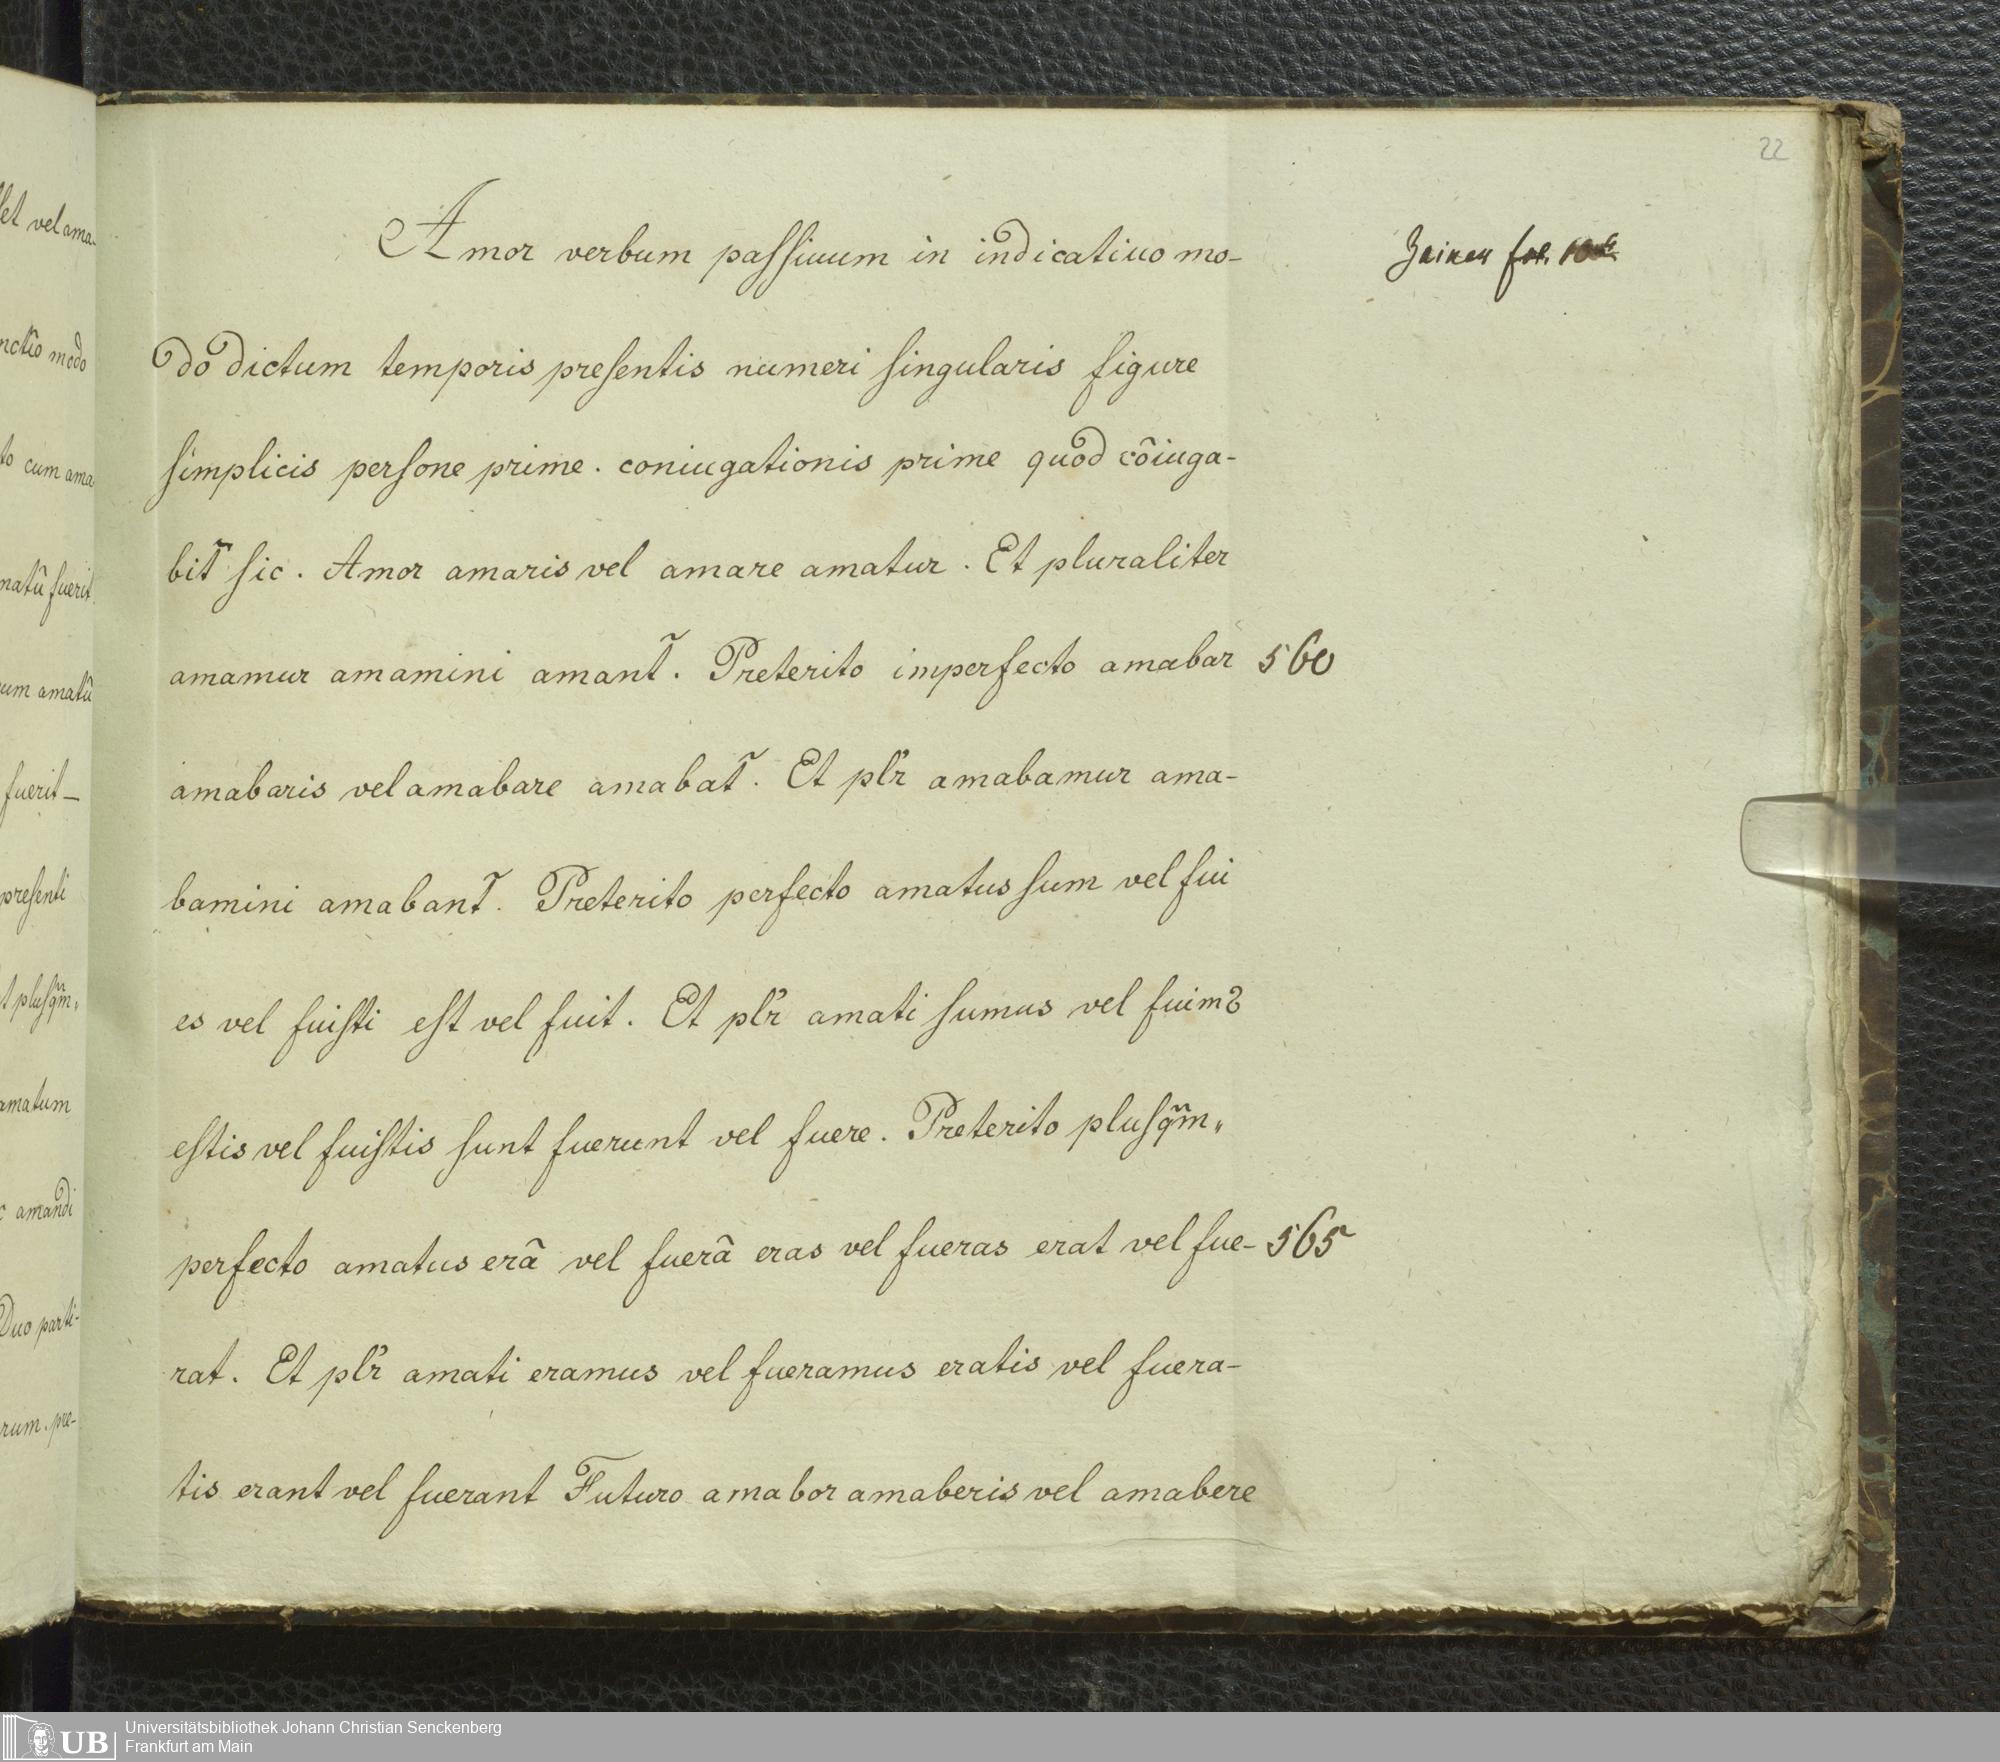 22
Amor verbum paſſiuum in indicatiuo mo-
do dictum temporis preſentis numeri ſingularis figure
ſimplicis perſone prime. coniugationis prime quod cõiuga-
bit̃ ſic. Amor amaris vel amare amatur. Et pluraliter
amamur amamini amant̃. Preterito imperfecto amabar 560
amabaris vel amabare amabat̃. Et pl'r amabamur ama-
bamini amabant̃. Preterito perfecto amatus ſum vel fui
es vel fuiſti eſt vel fuit. Et pl'r amati ſumus vel fuimꝰ
eſtis vel fuiſtis ſunt fuerunt vel fuere. Preterito pluſq̃m„
perfecto amatus erã vel fuerã eras vel fueras erat vel fue- 565
rat. Et pl'r amati eramus vel fueramus eratis vel fuera-
tis erant vel fuerant Futuro amabor amaberis vel amabere
let vel ama-
modo
to cum ama
natũ fuerit
cum amatũ
fuerit
preſenti
t pluſq̃m„
amatum
amandi
Duo parti-
rum. pre-
UB Universitätsbibliothek Johann Christian Senckenberg
Frankfurt am Main